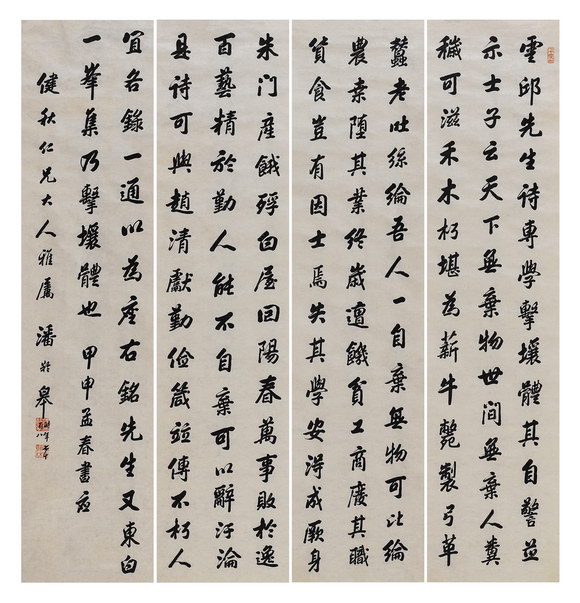 雲邱先生詩專學擊壤體其自警並
示士子云天下無棄物世間無棄人糞
穢可滋禾木朽堪為薪牛斃製弓革
蠶老吐絲綸吾人一自棄無物可比綸
農桑墮其業終歲遭饑貧工商廢其職
貨食豈有因士焉失其學安得成厥身
朱門產餓殍白屋回陽春萬事敗於逸
百藝精於勤人能不自棄可以辭汙淪
是詩可與趙清獻勤儉箴並傳不朽人
宜各錄一通以為座右銘先生又東白
一峯集乃擊壤體也 甲申孟春書應
健秋仁兄大人雅屬 潘齡皋